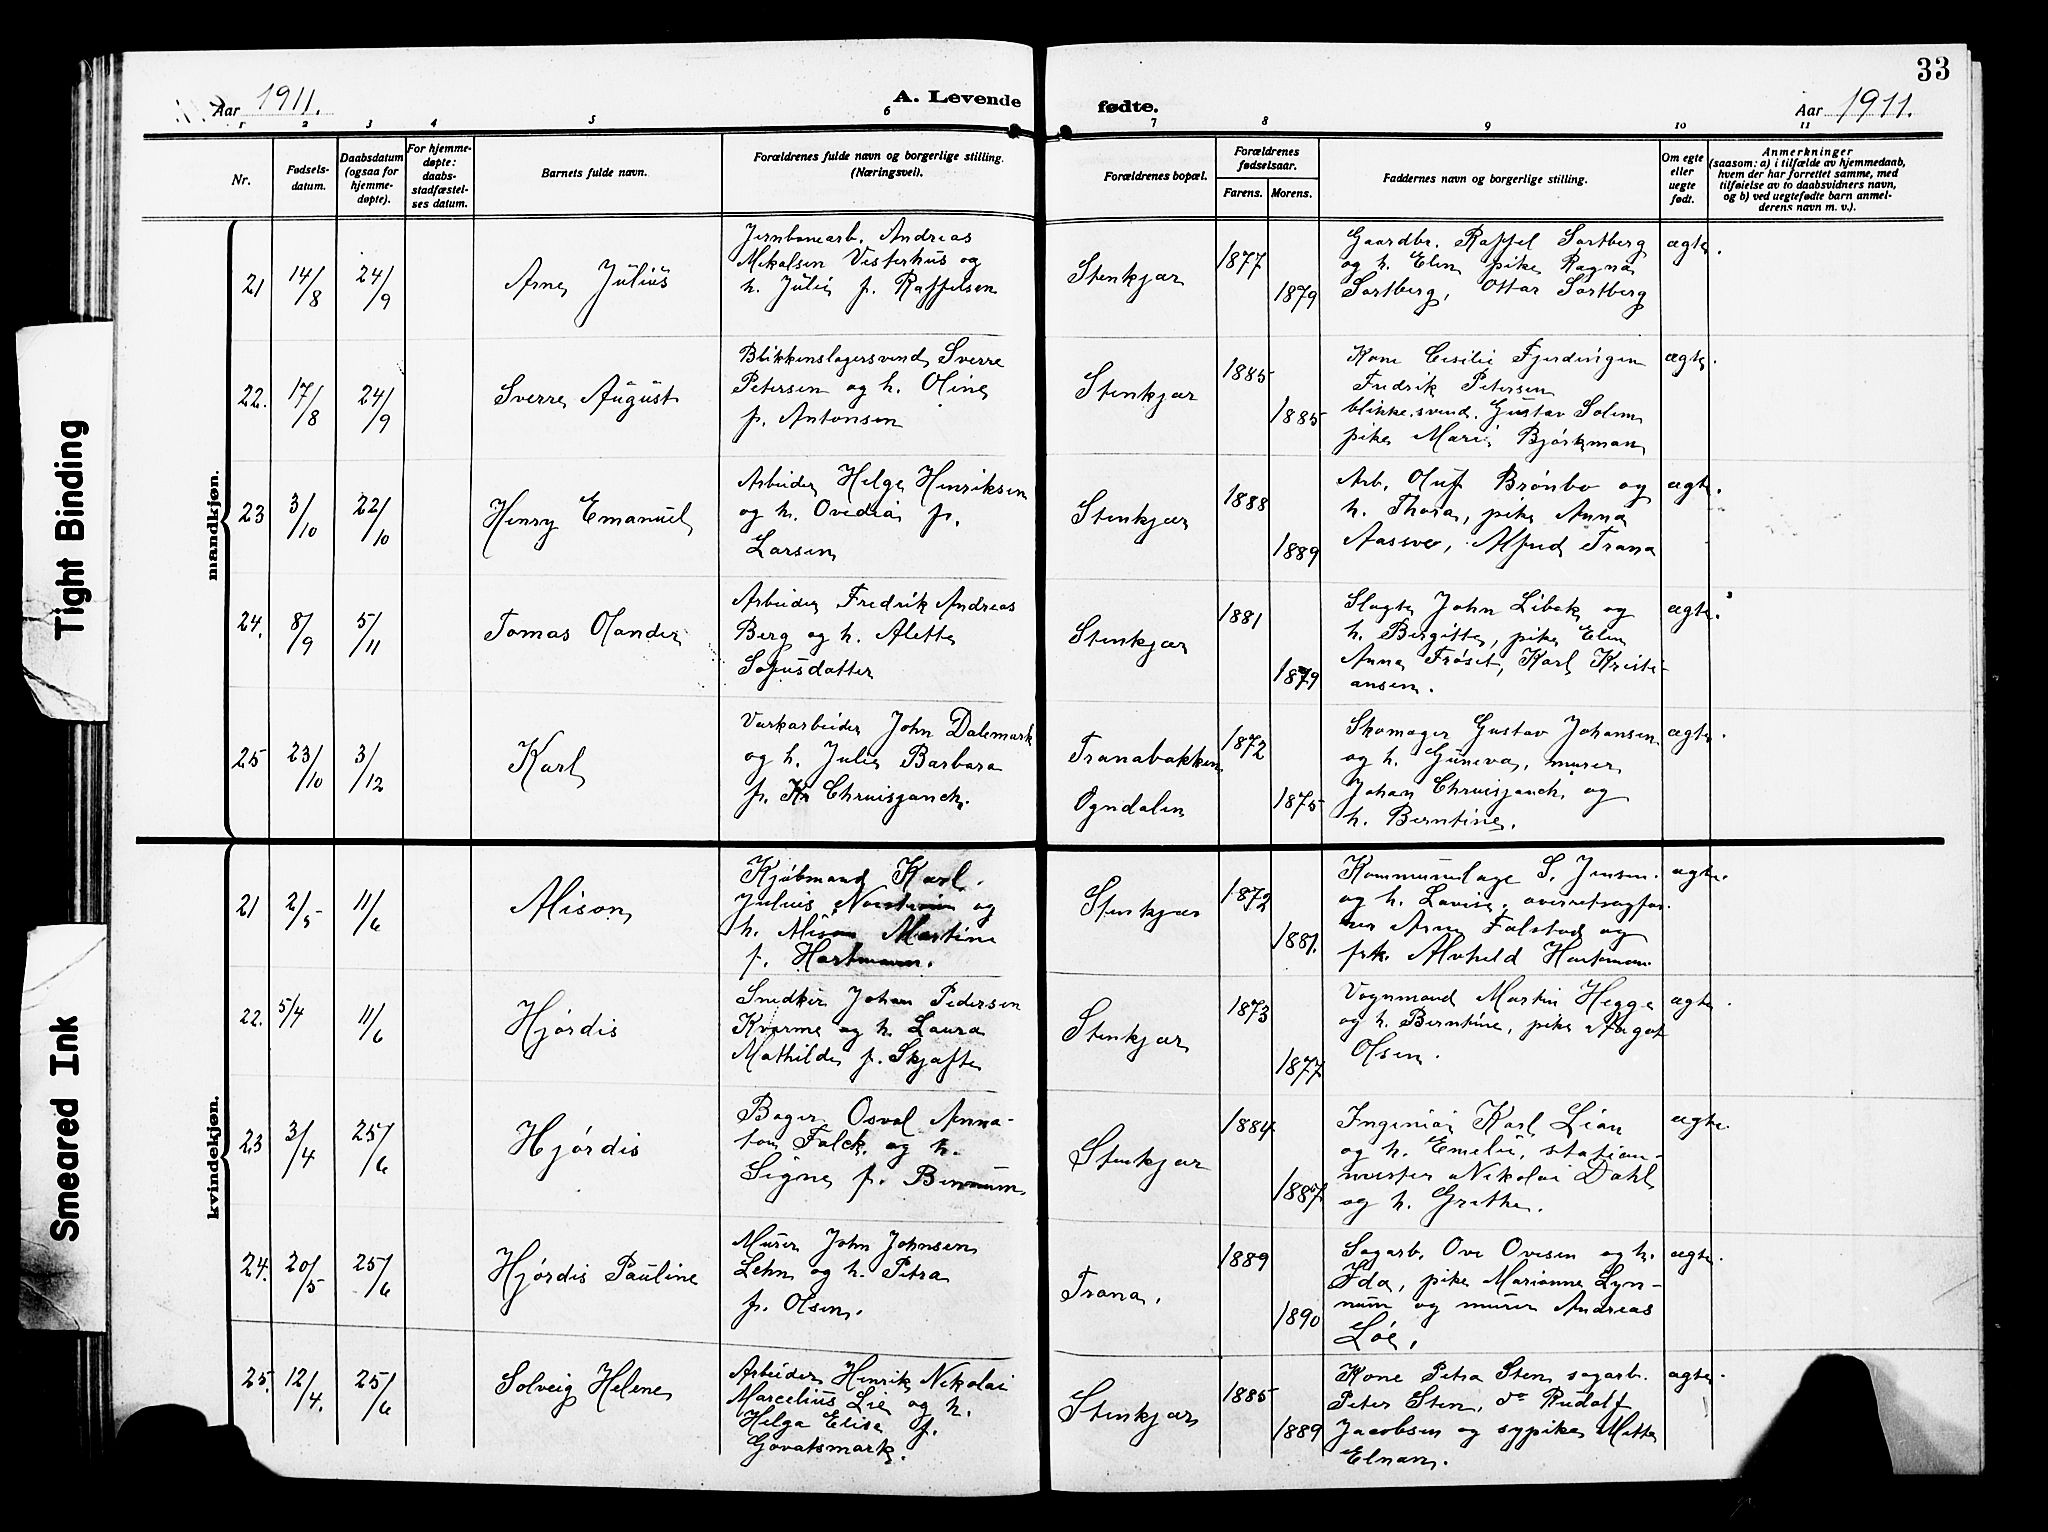 33
Aar 1911.
A. Levende fødte.
Aar 1911.
1 2 3 4 5 6 7 8 9 10 11
Nr.
Fødsels-
datum.
Daabsdatum
(ogsaa for
hjemme-
døpte).
For hjemme-
døpte:
daabs-
stadfæstel-
ses datum.
Barnets fulde navn.
Forældrenes fulde navn og borgerlige stilling.
(Næringsvei).
Forældrenes bopæl.
Forældrenes
fødselsaar.
Farens. Morens.
Faddernes navn og borgerlige stilling.
Om egte
eller
uegte
født.
Anmerkninger
(saasom: a) i tilfælde av hjemmedaab,
hvem der har forrettet samme, med
tilføielse av to daabsvidners navn,
og b) ved uegtefødte barn anmel-
derens navn m. v.).
mandkjøn.
21 14/8 24/9
Arne Julius
Jernbanearb. Andreas
Mikalsen Visterhus og
h. Julie f. Raffelsen
Stenkjær
1877
1879
Gaardbr. Raffel Sortberg
og h. Elen pike Ragna
Sortberg, Ottar Sortberg
ægte.
22. 17/8 24/9
Sverre August
Blikkenslagersvend Sverre
Petersen og h. Oline
f. Antonsen
Stenkjær
1885
1885
Kone Cesilie Fjerdingen
Fredrik Petersen
blikke.svend. Gustav Solem
pike Marie Bjørkman
ægte.
23 3/10 22/10
Henry Emanuel
Arbeider Helge Henriksen
og h. Ovedia f.
Larsen
Stenkjær
1888
1889
Arb. Oluf Brønbo og
h. Thora, pike Anna
Aassve, Alfred Trana
ægte.
24. 8/9 5/11
Tomas Olander
Arbeider Fredrik Andreas
Berg og h. Alette
Sofusdatter
Stenkjær
1881
1879
Slagter John Libak og
h. Bergitte, pike Elen
Anna Frøset, Karl Kristi-
ansen.
ægte.
25 23/10 3/12
Karl
Værkarbeider John Dalemark
og h. Julie Barbara
f. Kr Chruisjanch.
Tranabakken
Ogndalen
1872
1875
Skomager Gustav Johansen
og h. Guneva, murer
Johan Chruisjanch. og
h. Berntine.
ægte.
kvindekjøn.
21 2/5 11/6
Alison
Kjøbmand Karl
Julius og
h. Alison Martine
f. Hartmann.
Stenkjær
1872
1881.
Kommunelæge S. Jensen
og h. Lovise, overretsagfø-
rer Arne Falstad og
frk. Alvhild Hartmann
ægte.
22. 5/4 11/6
Hjørdis
Snedker Johan Pedersen
Kvarme og h. Laura
Mathilde f. Skjafte
Stenkjær
1873
1877
Vognmand Martin Hegge
og h. Berntine, pike Aagot
Olsen.
ægte.
23 3/4 25/6
Hjørdis
Bager Osval Anna-
ton Falck og h.
Signe f. Binnum
Stenkjær
1884
1887
Ingeniør Karl Lian
og h. Emelie, station-
mester Nikolai Dahl
og h. Grethe.
ægte.
24. 20/5 25/6
Hjørdis Pauline
Murer John Johnsen
Lehn og h. Petra
f. Olsen.
Trana.
1889
1890
Sagarb. Ove Ovesen og h.
Ida, pike Marianne Lyn-
num og murer Andreas
Løe,
ægte.
25. 12/4. 25/6
Solveig Helene
Arbeider Henrik Nikolai
Marcelius Lie og h.
Helga Elise f.
Govatsmark.
Stenkjær
1885
1889
Kone Petra Sten, sagarb.
Peter Sten, do Rudolf
Jacobsen og sypike Mette
Elnan.
ægte.
Tight Binding
Smeared Ink